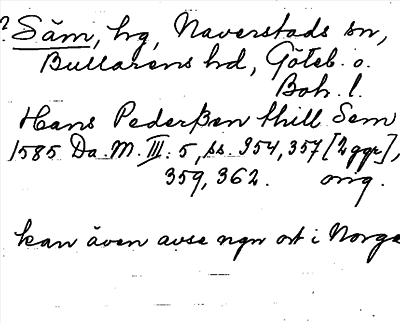 ? Säm, hg, Naverstads sn,
Bullarens hd, Göteb. o.
Boh. l.
Hans Pederßen thill Sem
1585 Da. M. III: 5, ss. 354, 357 [2 ggr],
359, 362. orig.
kan även avse ngn ort i Norge